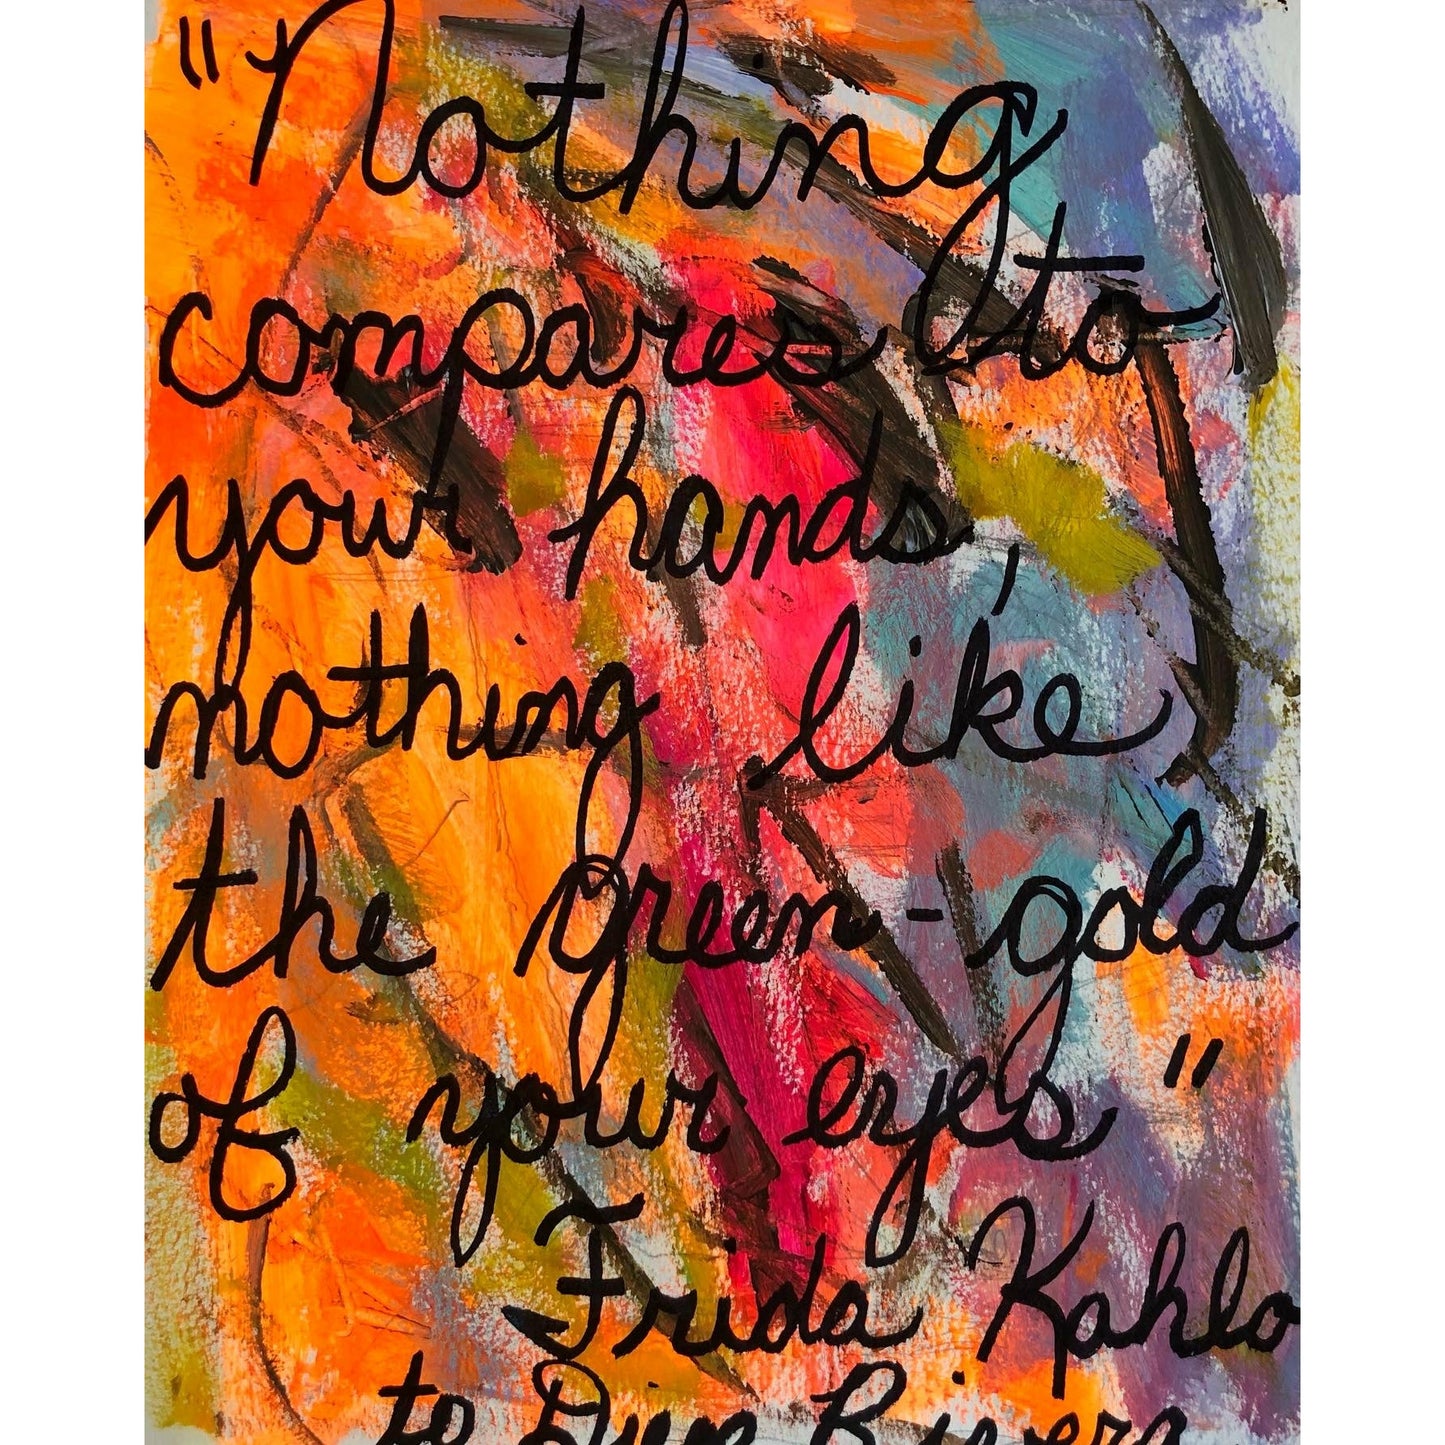 "Nothing
compares to
your hands,
nothing like
the green-gold
of your eyes"
Frida Kahlo
to Diego Rivera